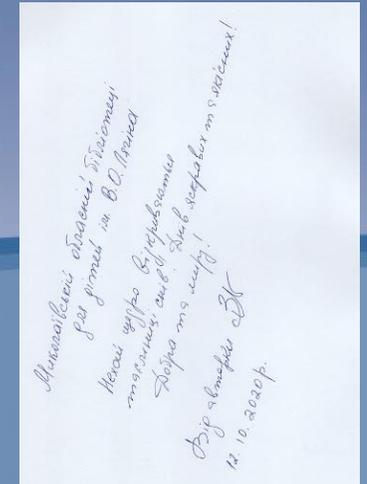 Миколаївській обласній бібліотеці
для дітей ім. В.О. Лягіна
Нехай щедро відкриваються
таємниці снів! Днів яскравих та якісних!
Добра та миру!
Від авторки
12.10.2020р.